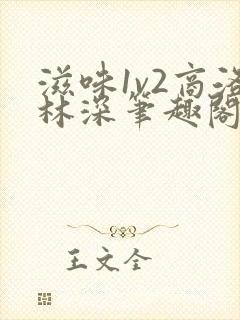 滋味1v2高洛
林深笔趣阁
王文全